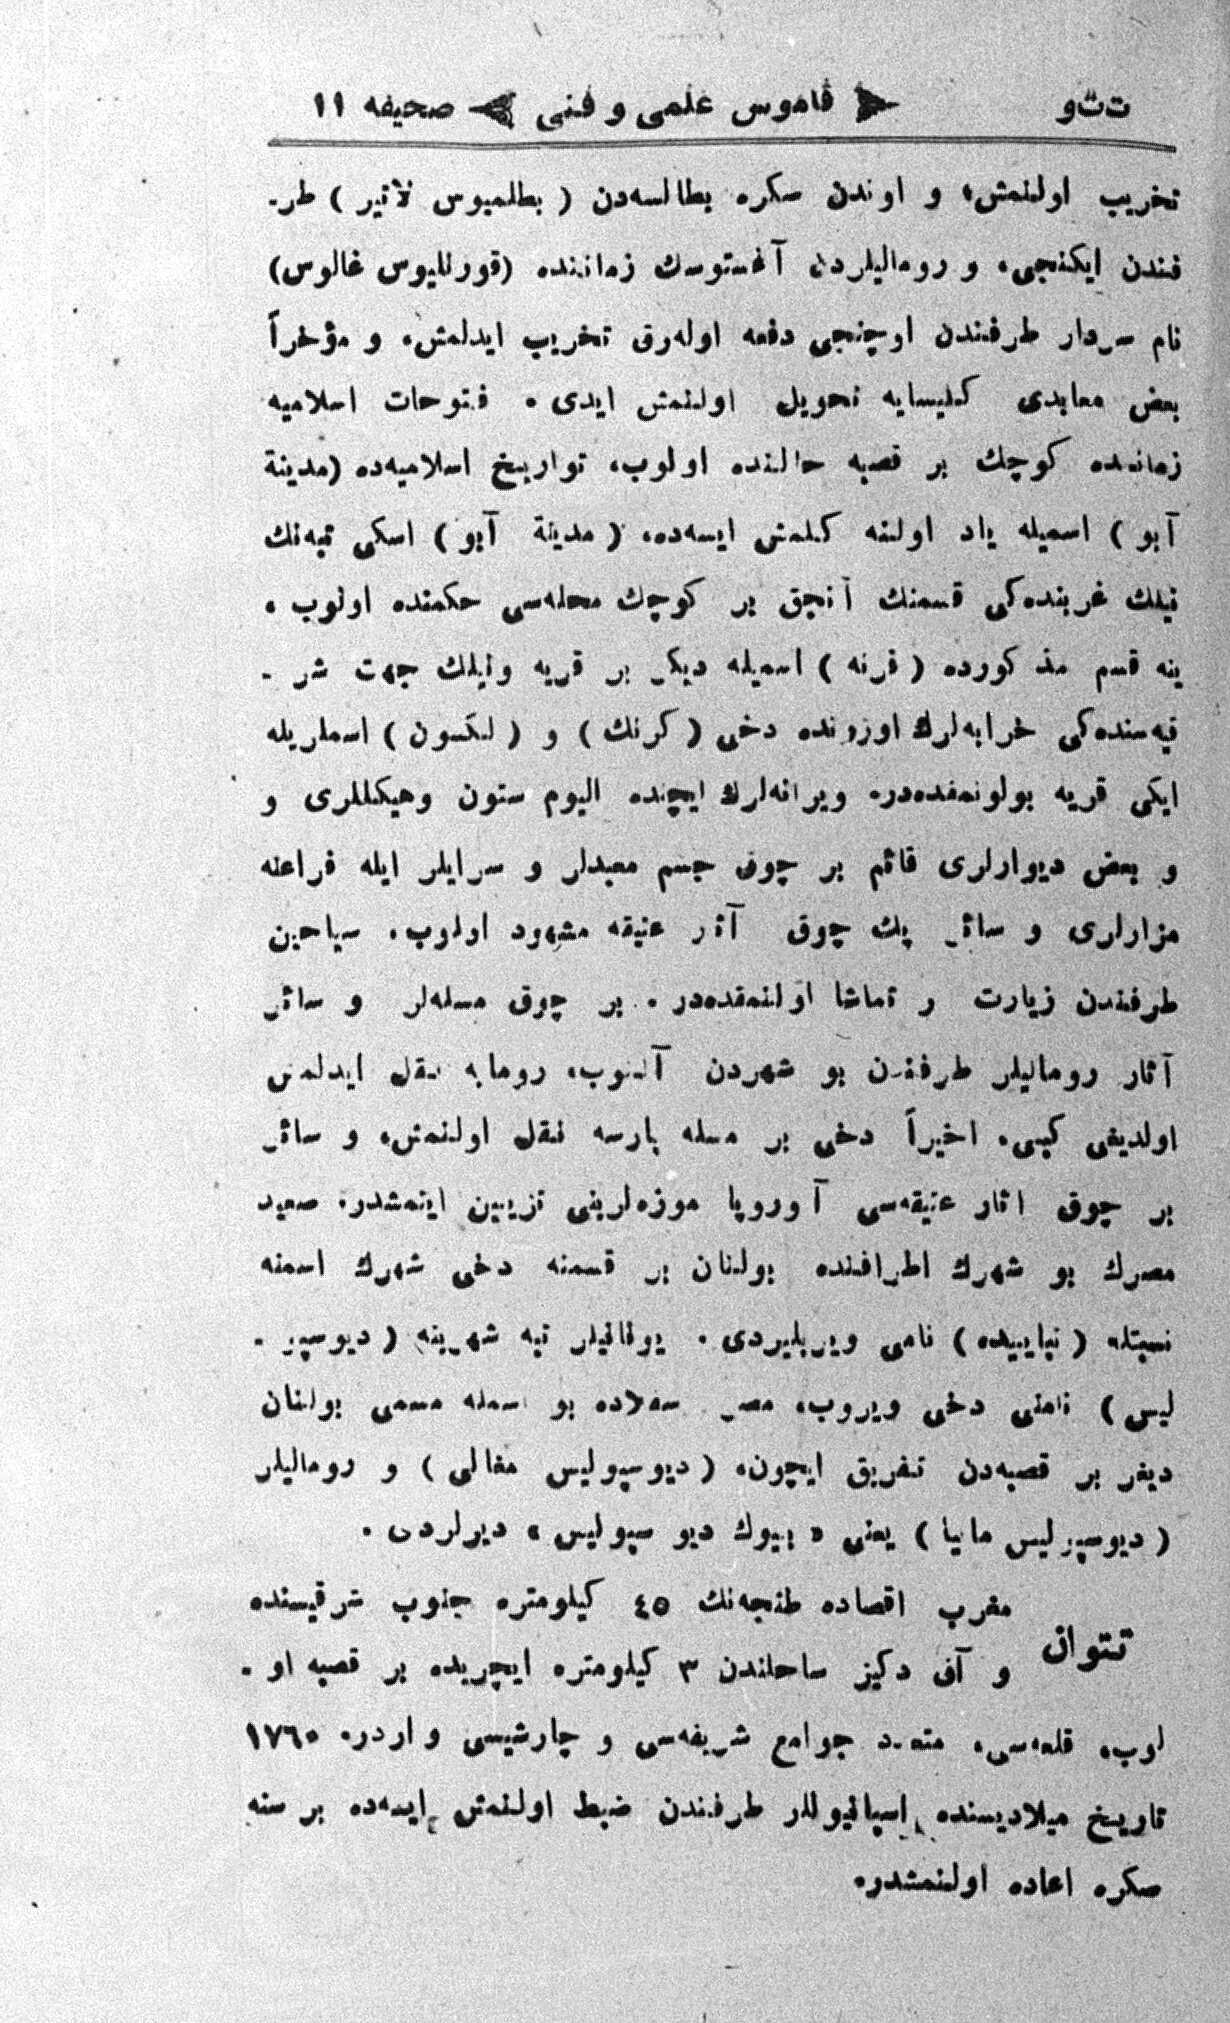 ت‌ت‌و قاموس علمی و فنی صحیفه ۱۱
تخریب اولنمش، و اوندن صكره بطالسه‌دن ( بطلمیوس لاتیر ) طر-
فندن ایكنجی، و رومالیلردن آغستوسك زماننده (قورنلیوس غالوس)
نام سردار طرفندن اوچنجی دفعه اوله‌رق تخریب ایدلمش، و مؤخراً
بعض معابدی كلیسایه تحویل اولنمش ایدی . فتوحات اسلامیه
زماننده كوچك بر قصبه حالنده اولوب، تواریخ اسلامیه‌ده (مدینة
آبو ) اسمیله یاد اولنه كلمش ایسه‌ده، ( مدینة آبو ) اسكی تبه‌نك
نیلك غربنده‌كی قسمنك آنجق بر كوچك محله‌سی حكمنده اولوب ،
ینه قسم مذكورده ( قرنه ) اسمیله دیكر بر قریه ونیلك جهت شر -
قیه‌سنده‌كی خرابه‌لرك اوزرنده دخی ( كرنك ) و ( لكسون ) اسملریله
ایكی قریه بولونمقده‌در. ویرانه‌لرك ایچنده الیوم ستون وهیكللری و
و بعض دیوارلری قائم بر چوق جسم معبدلر و سرایلر ایله فراعنه
مزارلری و سائر پك چوق آثار عتیقه مشهود اولوب، سیاحین
طرفندن زیارت و تماشا اولنمقده‌در . بر چوق مسله‌لر و سائر
آثار رومالیلر طرفندن بو شهردن آلنوب، رومایه نقل ایدلمش
اولدیغی كبی، اخیراً دخی بر مسله پارسه نقل اولنمش، و سائر
بر چوق آثار عتیقه‌سی آوروپا موزه‌لرینی تزیین ایتمشدر. صعید
مصرك بو شهرك اطرافنده بولنان بر قسمنه دخی شهرك اسمنه
نسبتله ( تباییده ) نامی ویریلیردی . یونانیلر تبه شهرینه ( دیوسپو -
لیس ) نامنی دخی ویروب، مصر سفلاده بو اسمله مسمی بولنان
دیغر بر قصبه‌دن تفریق ایچون، ( دیوسپولیس مغالی ) و رومالیلر
( دیوسپولیس مانیا ) یعنی « بیوك دیو سپولیس » دیرلردی .
تتوان مغرب اقصاده طنجه‌نك ٤٥ كیلومتره جنوب شرقیسنده
و آق دكیز ساحلندن ۳ كیلومتره ایچریده بر قصبه او -
لوب، قلعه‌سی، متعدد جوامع شریفه‌سی و چارشیسی واردر. ۱۷٦۰
تاریخ میلادیسنده اسپانیوللر طرفندن ضبط اولنمش ایسه‌ده بر سنه
صكره اعاده اولنمشدر.